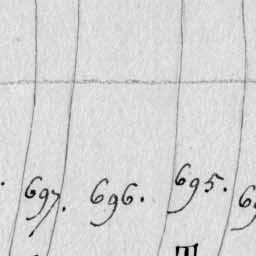 697. 696. 695.
T